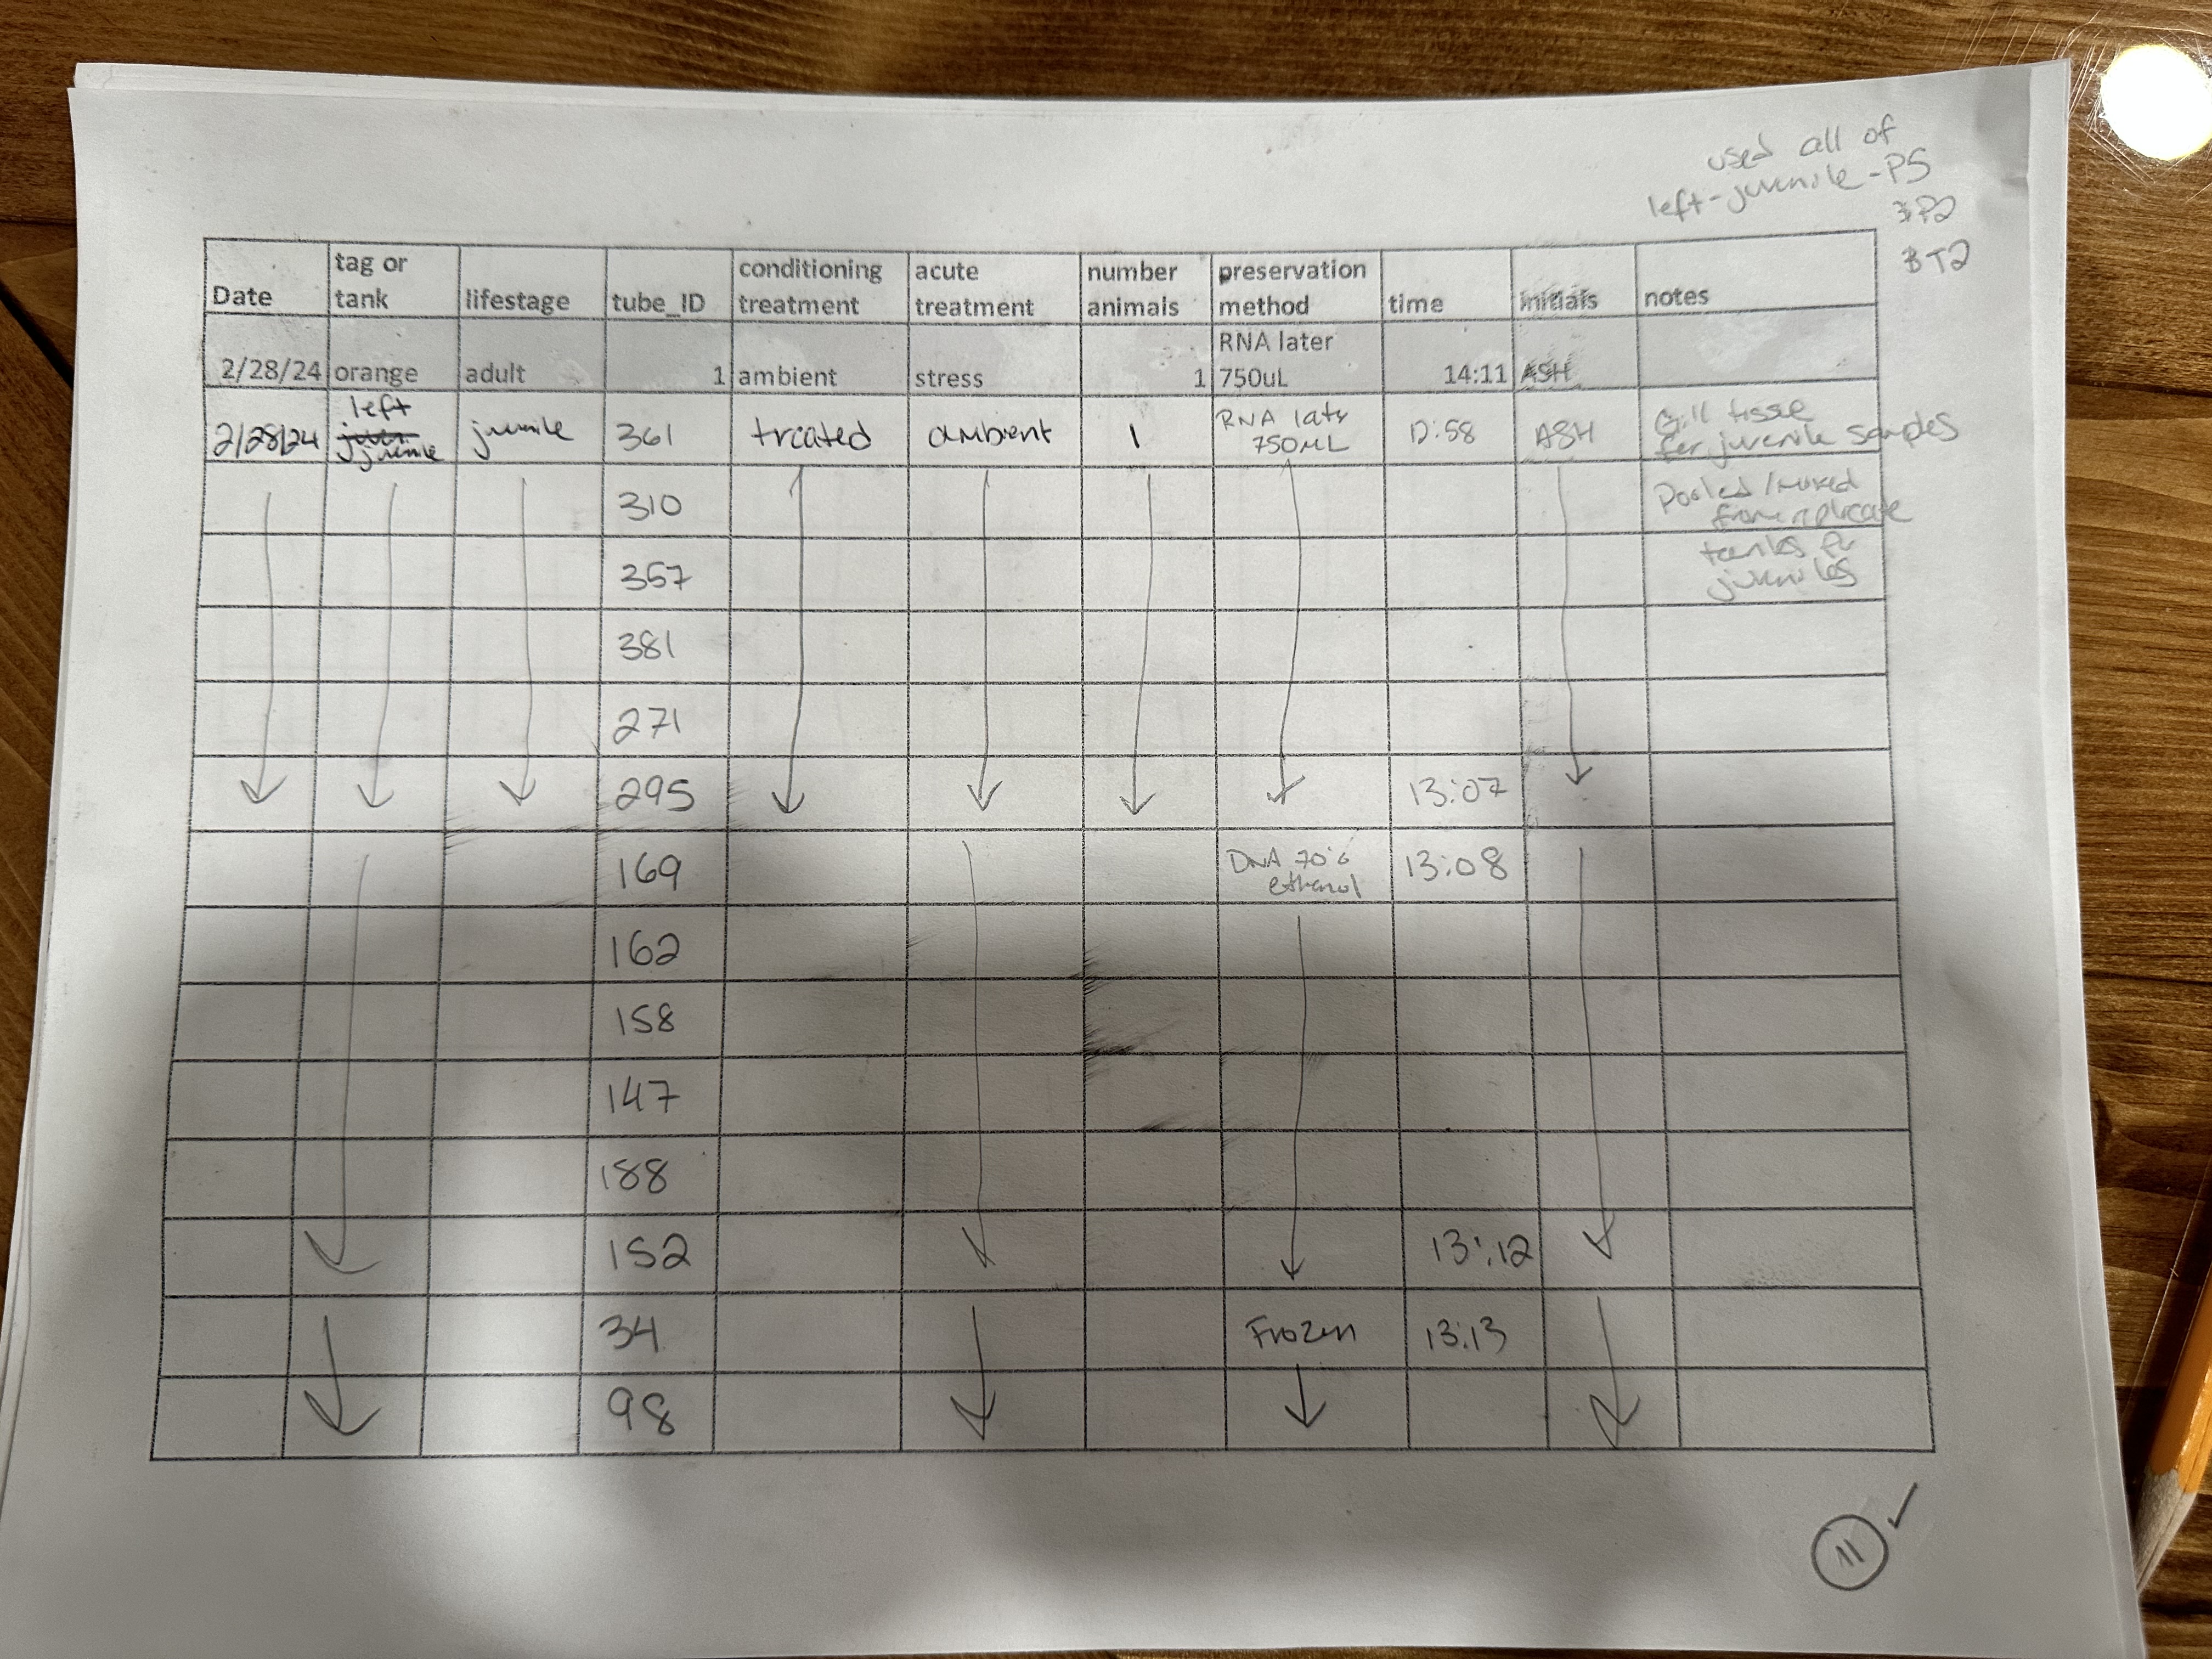 used all of
left-juvenile-PS
3P2
3T2
Date tag or tank lifestage tube_ID conditioning treatment acute treatment number animals preservation method time initials notes
2/28/24 orange adult 1 ambient stress 1 RNA later 750uL 14:11 ASH
2/28/24 left juvenile juvenile 361 treated ambient 1 RNA later 750uL 12:58 ASH Gill tissue for juvenile samples
310 Pooled/mixed from replicate
357 tanks for juveniles
381
271
295 13:07
169 DNA 70% ethanol 13:08
162
158
147
188
152 13:12
34 Frozen 13:13
98
11 ✓